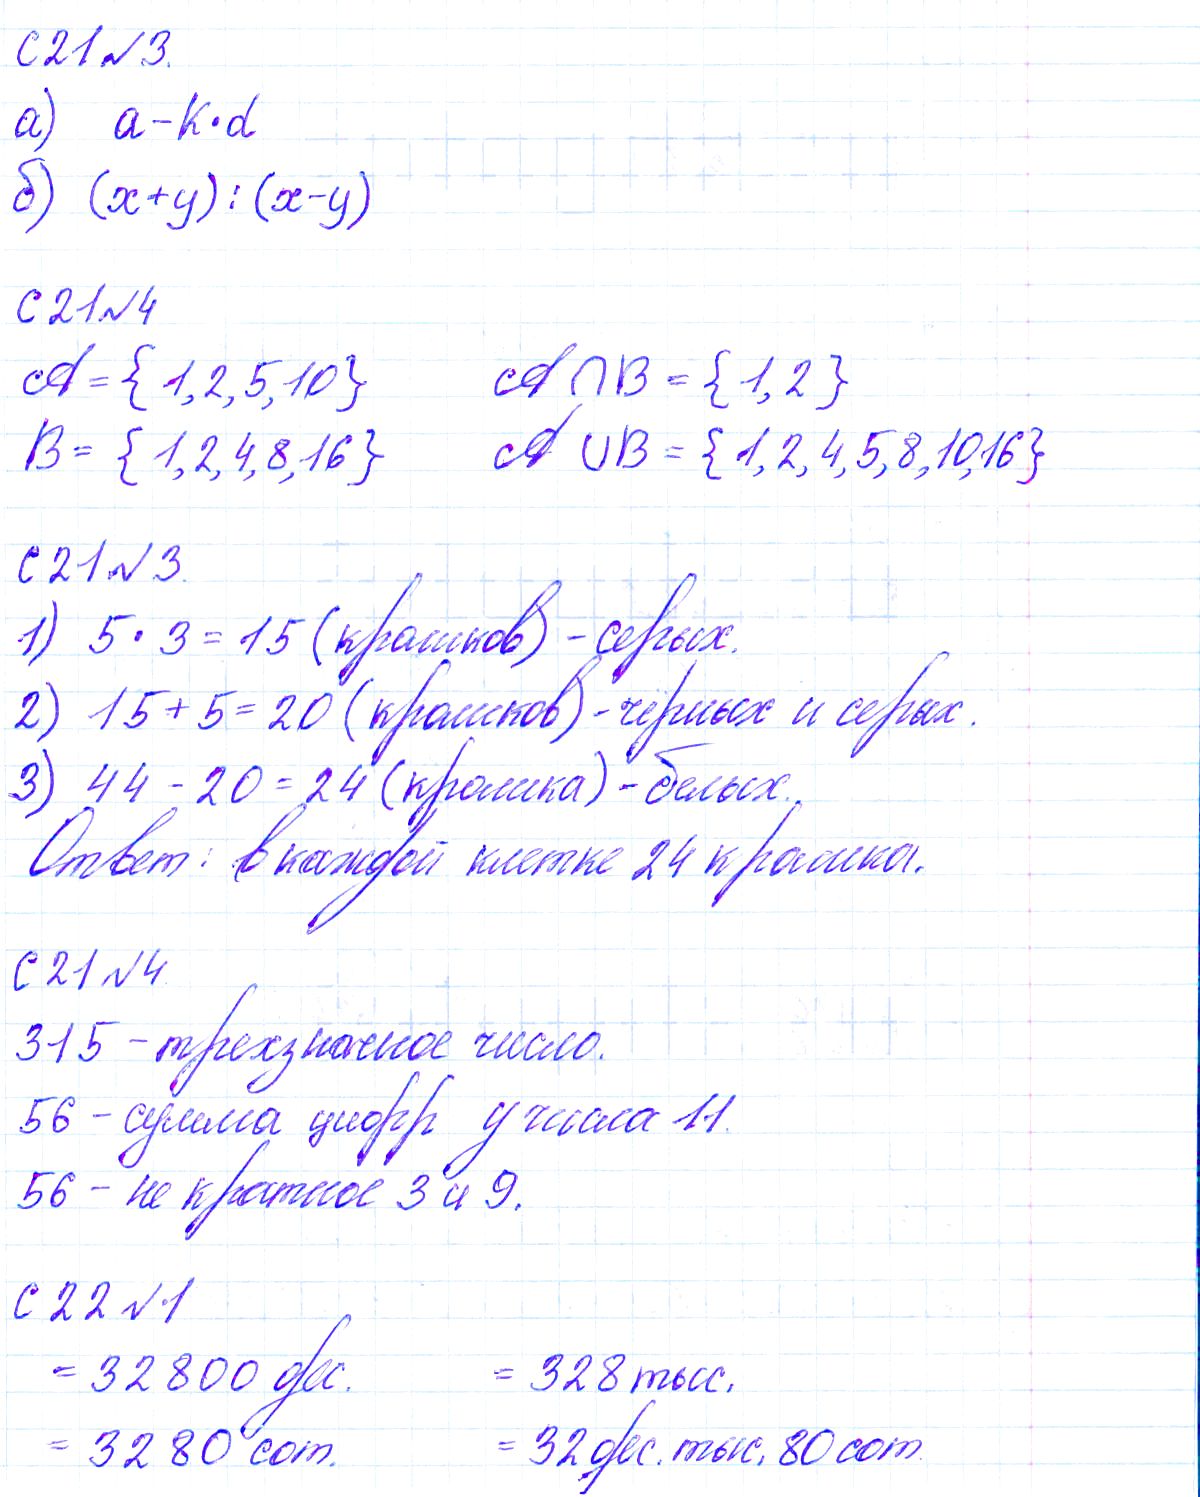 С21№3.
а) a-k·d
б) (x+y):(x-y)
С21№4
A={1,2,5,10} A∩B={1,2}
B={1,2,4,8,16} A∪B={1,2,4,5,8,10,16}
С21№3.
1) 5·3=15(кроликов)-серых.
2) 15+5=20(кроликов)-черных и серых.
3) 44-20=24(кролика)-белых.
Ответ: в каждой клетке 24 кролика.
С21№4
315-трехзначное число.
56-сумма цифр у числа 11.
56-не кратное 3 и 9.
С22№1
=32800 дес. =328тыс.
=3280 сот. =32дес.тыс.80сот